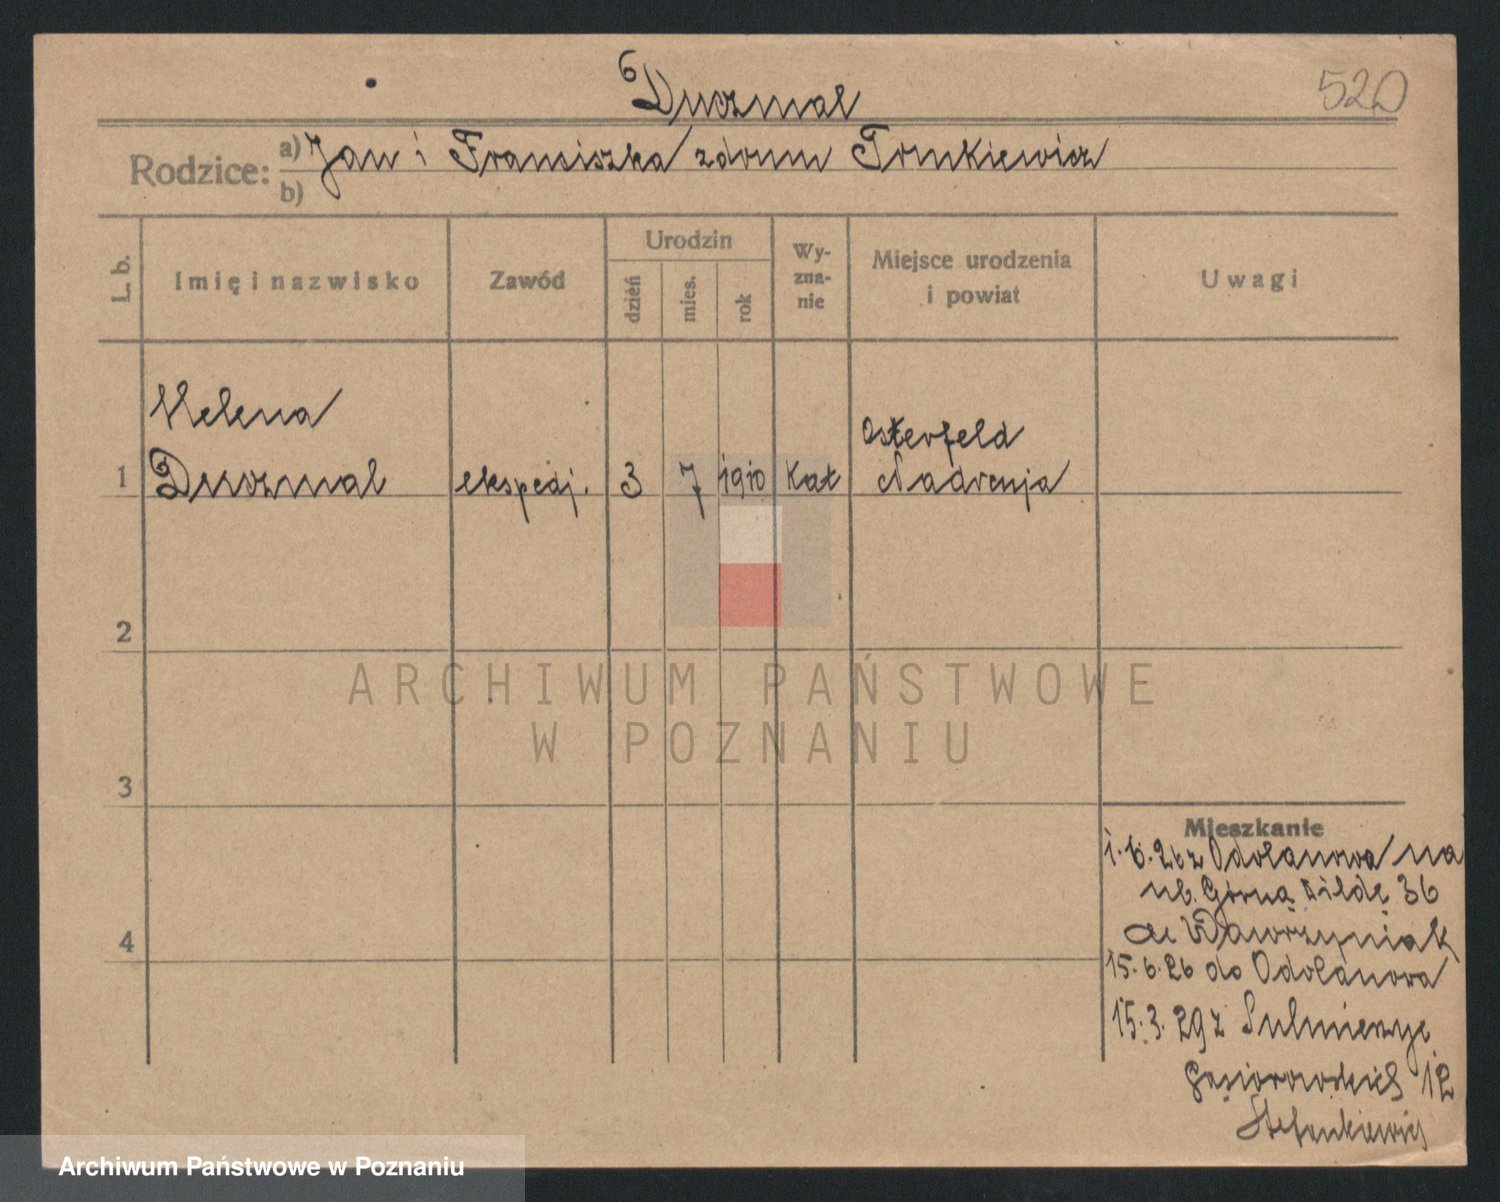 Duczmal
520
Rodzice: a) Jan i Franciszka z domu
b)
L. b.
Imię i nazwisko
Zawód
Urodzin
dzień
mies.
rok
Wy-
zna-
nie
Miejsce urodzenia
i powiat
Uwagi
Helena
1 Duczmal ekspedj. 3 7 1910 Kat Osterfeld
Nadrenja
2
3
4
Mieszkanie
1.6.26 z Odolanowa na
ul. Górną Wildę 36
Wawrzyniak
15.6.26 do Odolanowa
15.3.29 z Sulmierzyc
Gąsiorowskich 12
Stefankiewicz
ARCHIWUM PAŃSTWOWE
W POZNANIU
Archiwum Państwowe w Poznaniu